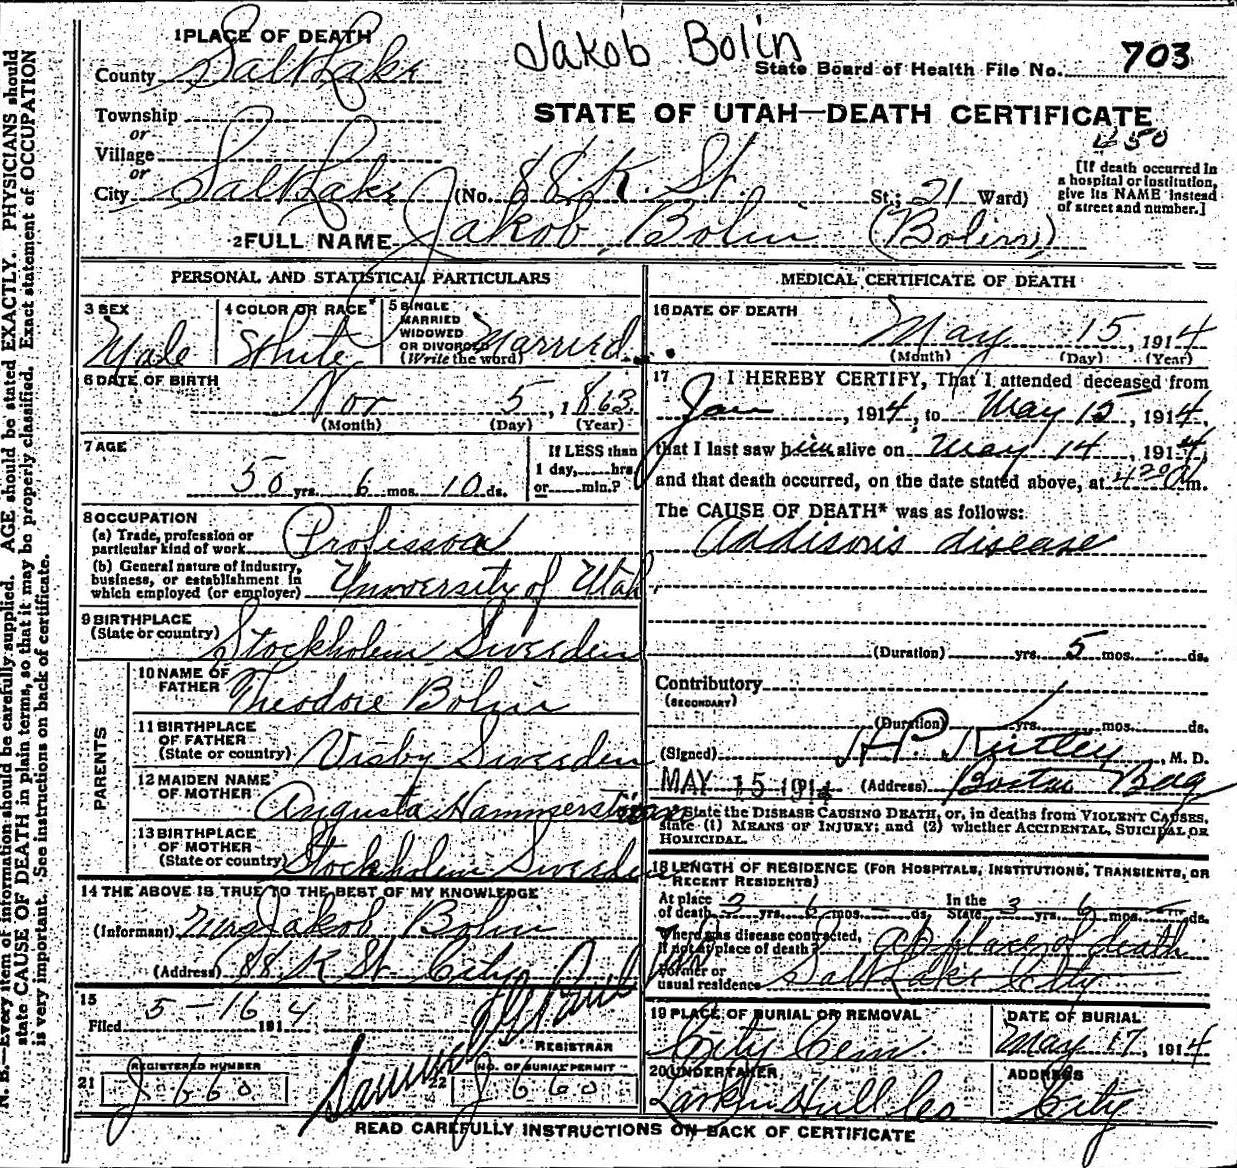 Jakob Bolin
1 PLACE OF DEATH
County Salt Lake
State Board of Health File No. 703
Township
STATE OF UTAH—DEATH CERTIFICATE
or
450
Village
or
City Salt Lake (No. 88 K. St. St.; 21 Ward)
[If death occurred in
a hospital or institution,
give its NAME instead
of street and number.]
2 FULL NAME Jakob Bolin (Bolinn)
PERSONAL AND STATISTICAL PARTICULARS
3 SEX Male
4 COLOR OR RACE White
5 SINGLE
MARRIED
WIDOWED
OR DIVORCED
(Write the word) Married
6 DATE OF BIRTH
Nov 5, 1863
(Month) (Day) (Year)
7 AGE
50 yrs. 6 mos. 10 ds.
If LESS than
1 day, hrs.
or min.?
8 OCCUPATION
(a) Trade, profession or
particular kind of work Professor
(b) General nature of industry,
business, or establishment in
which employed (or employer) University of Utah
9 BIRTHPLACE
(State or country) Stockholm Sweden
PARENTS
10 NAME OF
FATHER Theodore Bolin
11 BIRTHPLACE
OF FATHER
(State or country) Visby Sweden
12 MAIDEN NAME
OF MOTHER Augusta
13 BIRTHPLACE
OF MOTHER
(State or country) Stockholm Sweden
14 THE ABOVE IS TRUE TO THE BEST OF MY KNOWLEDGE
(Informant) Mrs Jakob Bolin
(Address) 88 K St. City
15
Filed 5-16 1914
REGISTRAR
21 REGISTERED NUMBER
J 660
22 NO. OF BURIAL PERMIT
J 660
MEDICAL CERTIFICATE OF DEATH
16 DATE OF DEATH
May 15, 1914
(Month) (Day) (Year)
17 I HEREBY CERTIFY, That I attended deceased from
Jan, 1914, to May 15, 1914,
that I last saw him alive on May 14, 1914,
and that death occurred, on the date stated above, at 4 20 A m.
The CAUSE OF DEATH* was as follows:
Addisons disease
(Duration) yrs. 5 mos. ds.
Contributory
(SECONDARY)
(Duration) yrs. mos. ds.
(Signed) H.P. Kirtley, M. D.
MAY 15 1914 (Address) Boston Bdg
State the DISEASE CAUSING DEATH, or, in deaths from VIOLENT CAUSES,
state (1) MEANS OF INJURY; and (2) whether ACCIDENTAL, SUICIDAL OR
HOMICIDAL.
18 LENGTH OF RESIDENCE (FOR HOSPITALS, INSTITUTIONS, TRANSIENTS, OR
RECENT RESIDENTS)
At place
of death 3 yrs. 6 mos. ds.
In the
State 3 yrs. 6 mos. ds.
Where was disease contracted,
if not at place of death? at place of death
Former or
usual residence Salt Lake City
19 PLACE OF BURIAL OR REMOVAL
City Cem.
DATE OF BURIAL
May 17, 1914
20 UNDERTAKER
Larkin Hull Co
ADDRESS
City
READ CAREFULLY INSTRUCTIONS ON BACK OF CERTIFICATE
N. B.—Every item of information should be carefully supplied. AGE should be stated EXACTLY. PHYSICIANS should
state CAUSE OF DEATH in plain terms, so that it may be properly classified. Exact statement of OCCUPATION
is very important. See instructions on back of certificate.